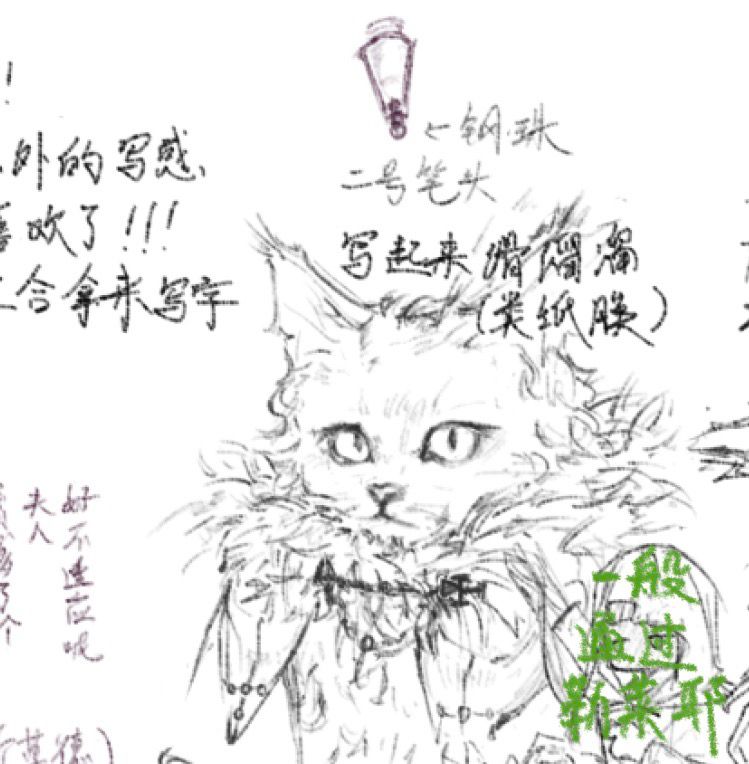 ！
外的写感、
喜欢了！！！
合拿来写字
←钢珠
二号笔头
写起来滑溜溜
（类纸膜）
好不适应呢
夫人
一般
通过
勒莱耶
德）